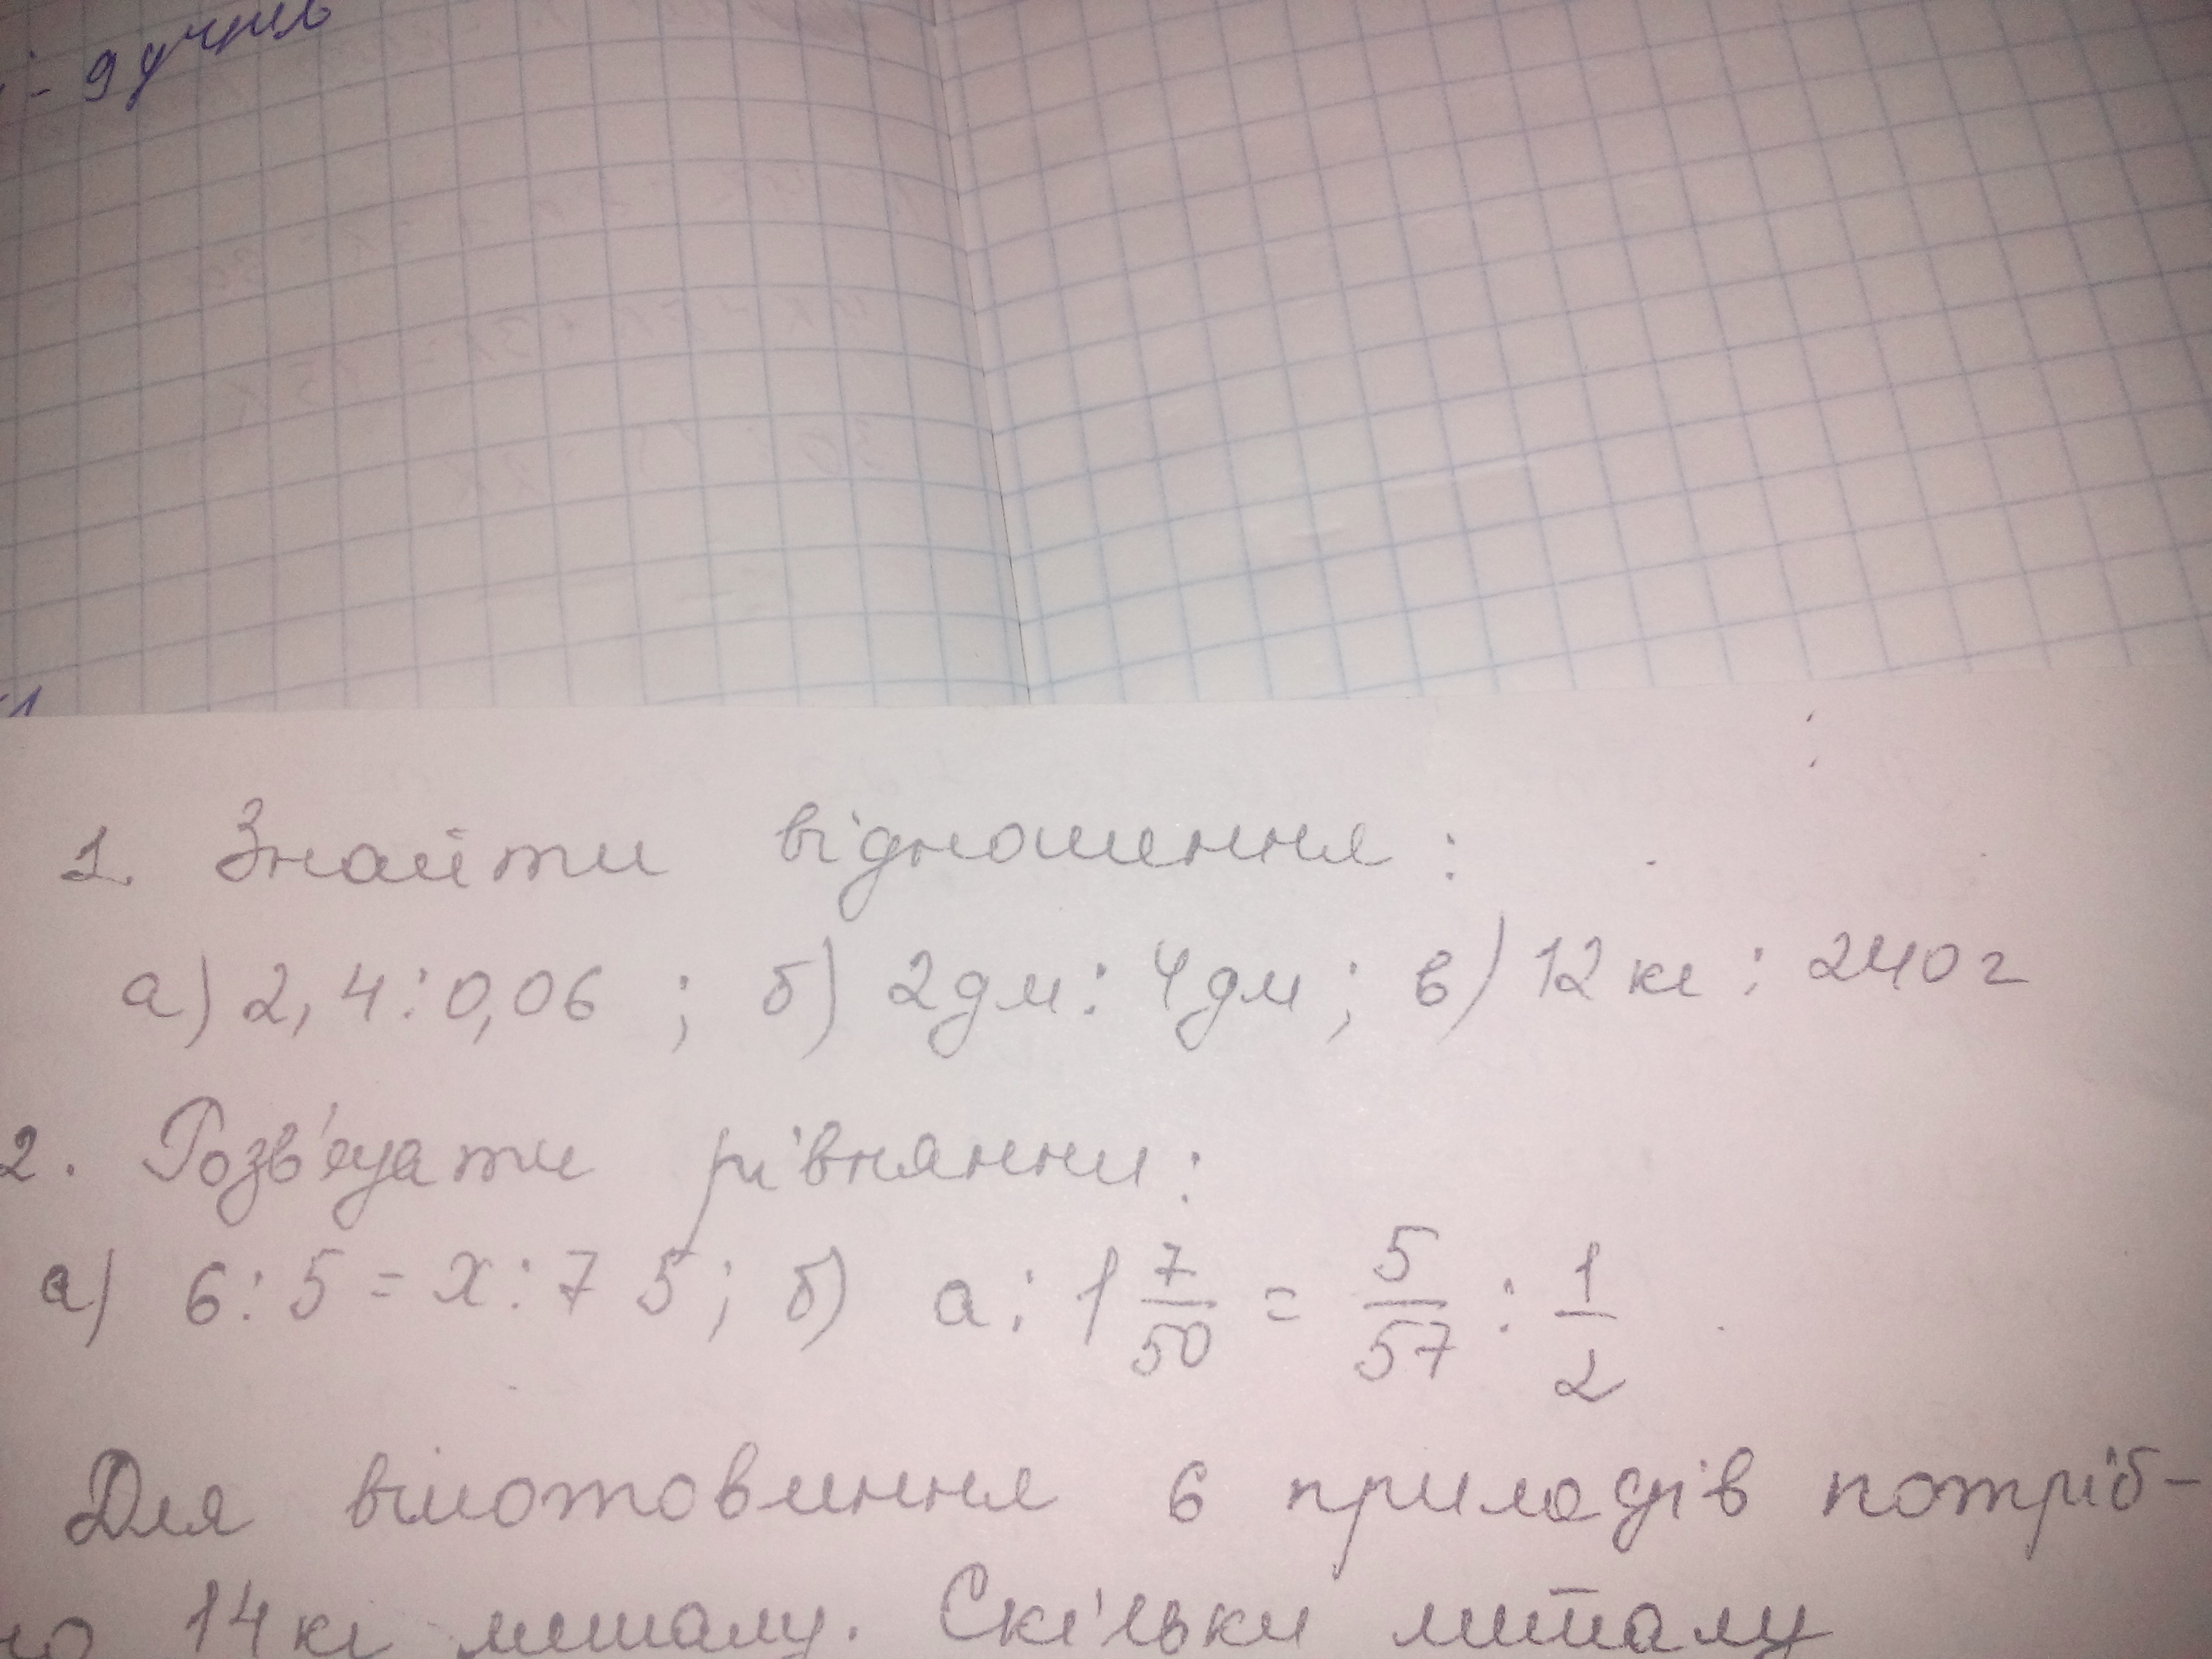 - 9 учнів
1. Знайти відношення:
а) 2,4:0,06 ; б) 2дм: 4дм; в) 12 кг : 240 г
2. Розв'язати рівняння:
а) 6:5 = x:75; б) a : 1 7/50 = 5/57 : 1/2
Для виготовлення 6 приладів потріб-
но 14 кг металу. Скільки металу